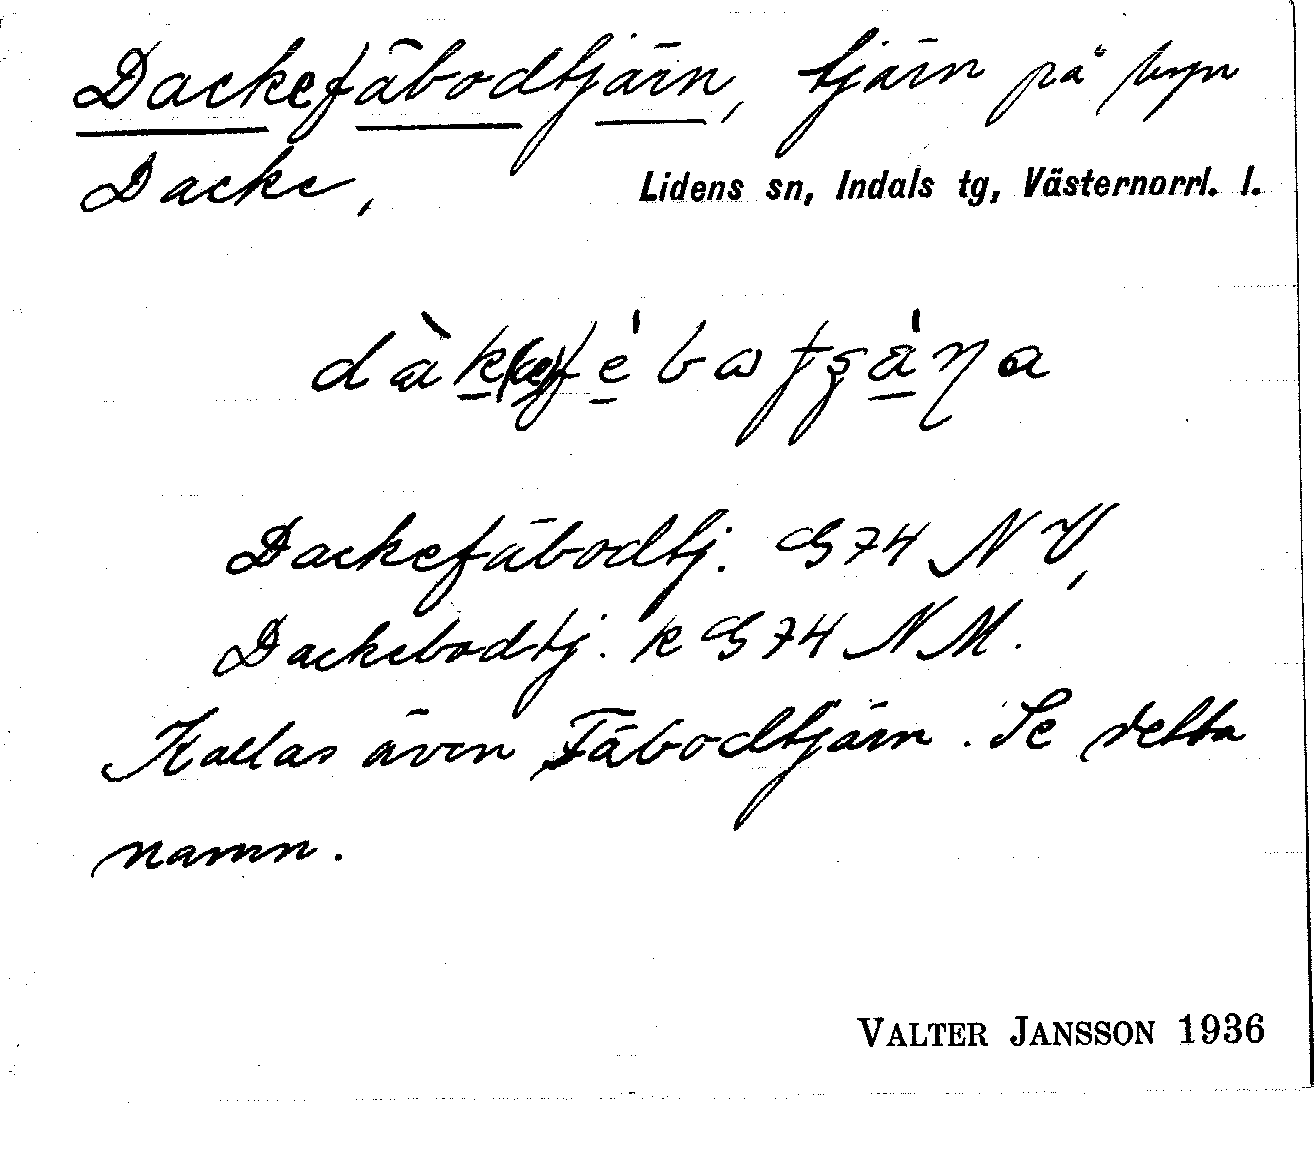 Dackefäbodtjärn, tjärn på byn
Dacke, Lidens sn, Indals tg, Västernorrl. l.
Dackefäbodtj. G74 NV,
Dackebodtj. k G74 NM.
Kallas även Fäbodtjärn. Se detta
namn.
VALTER JANSSON 1936